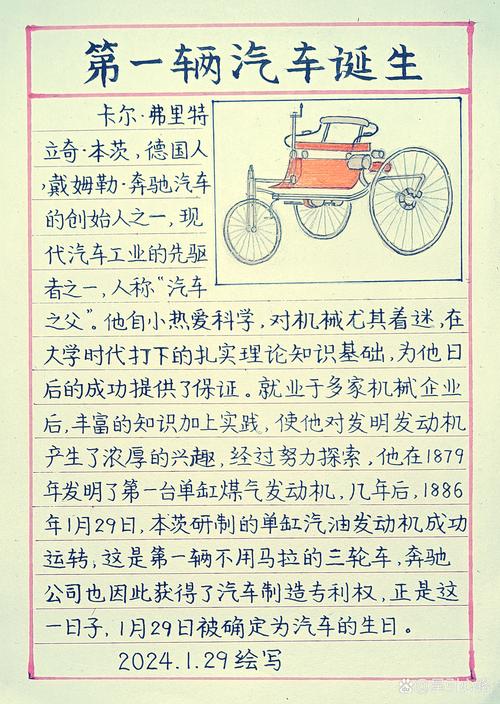 第一辆汽车诞生
卡尔·弗里特
立奇·本茨，德国人
，戴姆勒·奔驰汽车
的创始人之一，现
代汽车工业的先驱
者之一，人称“汽车
之父”。他自小热爱科学，对机械尤其着迷，在
大学时代打下的扎实理论知识基础，为他日
后的成功提供了保证。就业于多家机械企业
后，丰富的知识加上实践，使他对发明发动机
产生了浓厚的兴趣，经过努力探索，他在1879
年发明了第一台单缸煤气发动机，几年后，1886
年1月29日，本茨研制的单缸汽油发动机成功
运转，这是第一辆不用马拉的三轮车，奔驰
公司也因此获得了汽车制造专利权，正是这
一日子，1月29日被确定为汽车的生日。
2024.1.29绘写